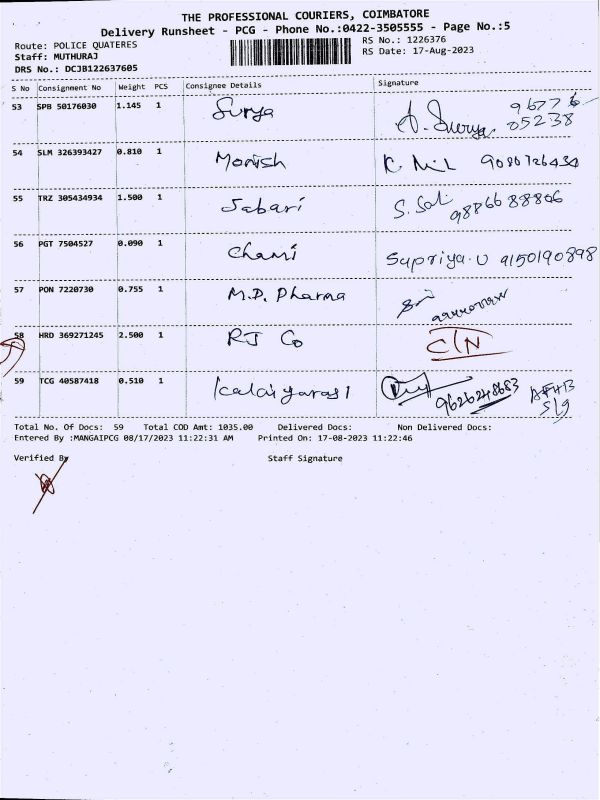 THE PROFESSIONAL COURIERS, COIMBATORE
Delivery Runsheet - PCG - Phone No.:0422-3505555 - Page No.:5
Route: POLICE QUATERES RS No.: 1226376
Staff: MUTHURAJ RS Date: 17-Aug-2023
DRS No.: DCJB122637605
S No Consignment No Weight PCS Consignee Details Signature
53 SPB 50176030 1.145 1 Surya A. Surya 96776
05238
54 SLM 326393427 0.810 1 Monish
55 TRZ 305434934 1.500 1 Sabari S. Sal 9886688806
56 PGT 7504527 0.090 1 Chami Supriya.U 9150190898
57 PON 7220730 0.755 1 M.P. Pharma
58 HRD 369271245 2.500 1 RJ Co C/N
59 TCG 40587418 0.510 1 Kalaiyarasi 9626248683
Total No. Of Docs: 59 Total COD Amt: 1035.00 Delivered Docs: Non Delivered Docs:
Entered By :MANGAIPCG 08/17/2023 11:22:31 AM Printed On: 17-08-2023 11:22:46
Verified By Staff Signature